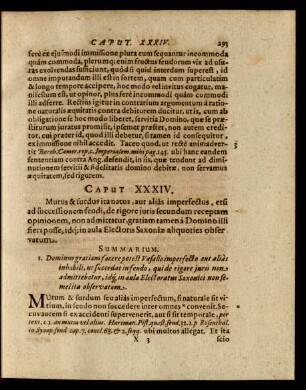 CAPUT. XXXIV. 293
fere ex ejusmodi immissione plura cum sequantur incommoda
quàm commoda, plerumq; enim fructus feudorum vix ad usi-
tras exolvendas sufficiunt, quòd si quid interdum superest, id
omne imputandum illi est in sortem, quam cum particulatim
& longo tempore accipere, hoc modo relinvitus cogatur, ma-
nifestum est, ut opinor, plus ferè incommodi quàm commodi
illi adferre. Rectius igitur in contrarium argumentum à ratio-
ne naturalis æquitatis contra debitorem ducitur, utut, cum alia
obligatione se hoc modo liberet, servitia Domino, quæ se præ-
stiturum juratus promisit, ipsemet præstet, non autem credi-
tor, cui præter id, quod illi debetur, si tamen id consequitur,
ex immissione nihil accedit. Taceo quod, ut rectè animadver-
tit Barth. Camer. rep. c. Imperialem. mihi pag. 145. ubi hanc eandem
sententiam contra Ang. defendit, in iis, quæ tendunt ad dimi-
nutionem servitii & fidelitatis domino debitæ, non servamus
æquitatem, sed rigorem.
CAPUT XXXIV.
Mutus & surdus ita natus, aut aliàs imperfectus, etsi
ad successionem feudi, de rigore juris secundum receptam
opinionem, non admittatur, gratiam tamen à Domino illi
fieri posse, idq; in aula Electoris Saxoniæ aliquoties obser-
vatum.
SUMMARIUM.
1. Dominus gratiam facere potest Vasallo imperfecto aut aliàs
inhabili, ut succedat in feudo, qui de rigore juris non
admitteretur, idq; in aula Electoratus Saxonici non se-
mel ita observatum.
MUtum & surdum seu aliàs imperfectum, si naturale sit vi-
tium, in feudo non succedere inter omnes ferè convenit. Se-
cus autem si ex accidenti superveniret, aut solùm sit temporale, per
text. c. 1. an mutus vel alius. Hartman. Pist. quæst. feud. 32. 2. p Rosenthal.
in Synop. feud cap. 7. concl. 63. & 2. seqq. ubi multos allegat. Et ita
X 3 scio